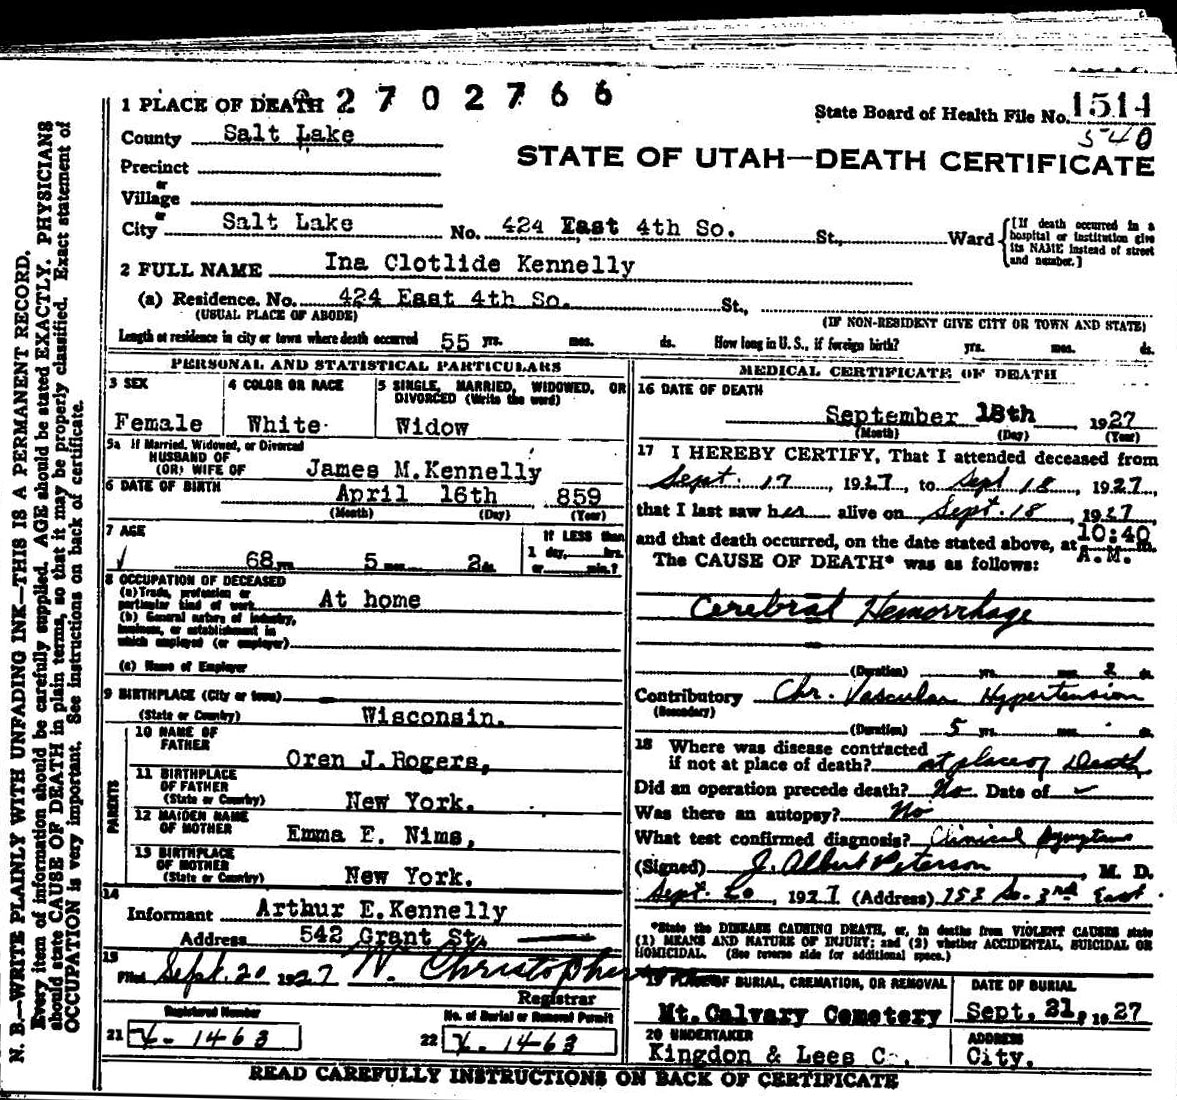 1 PLACE OF DEATH 2702766
State Board of Health File No. 1514
540
County Salt Lake
STATE OF UTAH—DEATH CERTIFICATE
Precinct
or
Village
or
City Salt Lake No. 424 East 4th So. St., Ward
[If death occurred in a hospital or institution give its NAME instead of street and number.]
2 FULL NAME Ina Clotlide Kennelly
(a) Residence. No. 424 East 4th So. St.,
(USUAL PLACE OF ABODE) (IF NON-RESIDENT GIVE CITY OR TOWN AND STATE)
Length of residence in city or town where death occurred 55 yrs. mos. ds. How long in U. S., if foreign birth? yrs. mos. ds.
PERSONAL AND STATISTICAL PARTICULARS
3 SEX
Female
4 COLOR OR RACE
White
5 SINGLE, MARRIED, WIDOWED, OR DIVORCED (Write the word)
Widow
5a If Married, Widowed, or Divorced
HUSBAND OF
(OR) WIFE OF James M. Kennelly
6 DATE OF BIRTH April 16th 859
(Month) (Day) (Year)
7 AGE
68 yrs. 5 mos. 2 ds.
If LESS than
1 day, hrs.
or min.?
8 OCCUPATION OF DECEASED
(a) Trade, profession or
particular kind of work At home
(b) General nature of industry,
business, or establishment in
which employed (or employer)
(c) Name of Employer
9 BIRTHPLACE (City or town)
(State or Country) Wisconsin.
PARENTS
10 NAME OF
FATHER Oren J. Rogers,
11 BIRTHPLACE
OF FATHER
(State or Country) New York.
12 MAIDEN NAME
OF MOTHER Emma E. Nims,
13 BIRTHPLACE
OF MOTHER
(State or Country) New York.
14
Informant Arthur E. Kennelly
Address 542 Grant St.
15
Filed Sept. 20 1927 W. Christopherson
Registrar
Registered Number
21 X-1463
No. of Burial or Removal Permit
22 X-1463
MEDICAL CERTIFICATE OF DEATH
16 DATE OF DEATH
September 18th 1927
(Month) (Day) (Year)
17 I HEREBY CERTIFY, That I attended deceased from
Sept. 17, 1927, to Sept 18, 1927,
that I last saw her alive on Sept. 18, 1927
and that death occurred, on the date stated above, at 10:40 m.
A.M.
The CAUSE OF DEATH* was as follows:
Cerebral Hemorrhage
(Duration) yrs. mos. 2 ds.
Contributory Chr. Vascular Hypertension
(Secondary)
(Duration) 5 yrs. mos. ds.
18 Where was disease contracted
if not at place of death? at place of Death
Did an operation precede death? No Date of
Was there an autopsy? No
What test confirmed diagnosis? Clinical Symptoms
(Signed) J. Albert Peterson, M. D.
Sept. 20, 1927 (Address) 153 So. 3rd East
*State the DISEASE CAUSING DEATH, or, in deaths from VIOLENT CAUSES state
(1) MEANS AND NATURE OF INJURY; and (2) whether ACCIDENTAL, SUICIDAL OR
HOMICIDAL. (See reverse side for additional space.)
19 PLACE OF BURIAL, CREMATION, OR REMOVAL
Mt. Calvary Cemetery
DATE OF BURIAL
Sept. 21, 1927
20 UNDERTAKER
Kingdon & Lees C .
ADDRESS
City.
READ CAREFULLY INSTRUCTIONS ON BACK OF CERTIFICATE
N. B.—WRITE PLAINLY WITH UNFADING INK—THIS IS A PERMANENT RECORD.
Every item of information should be carefully supplied. AGE should be stated EXACTLY. PHYSICIANS
should state CAUSE OF DEATH in plain terms, so that it may be properly classified. Exact statement of
OCCUPATION is very important. See instructions on back of certificate.